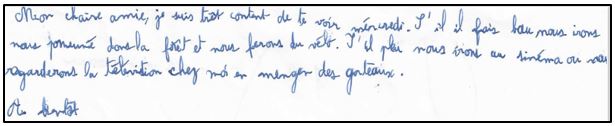 Meon chaire amie, je suis trot content de te voir mércredi. S'il il fais bau nous irons
nous promené dans la forêt et nous ferons du vélo. S'il pleu nous irons au sinéma ou nous
ragarderons la télévision chez moi en menger des gateaux.
A bientôt